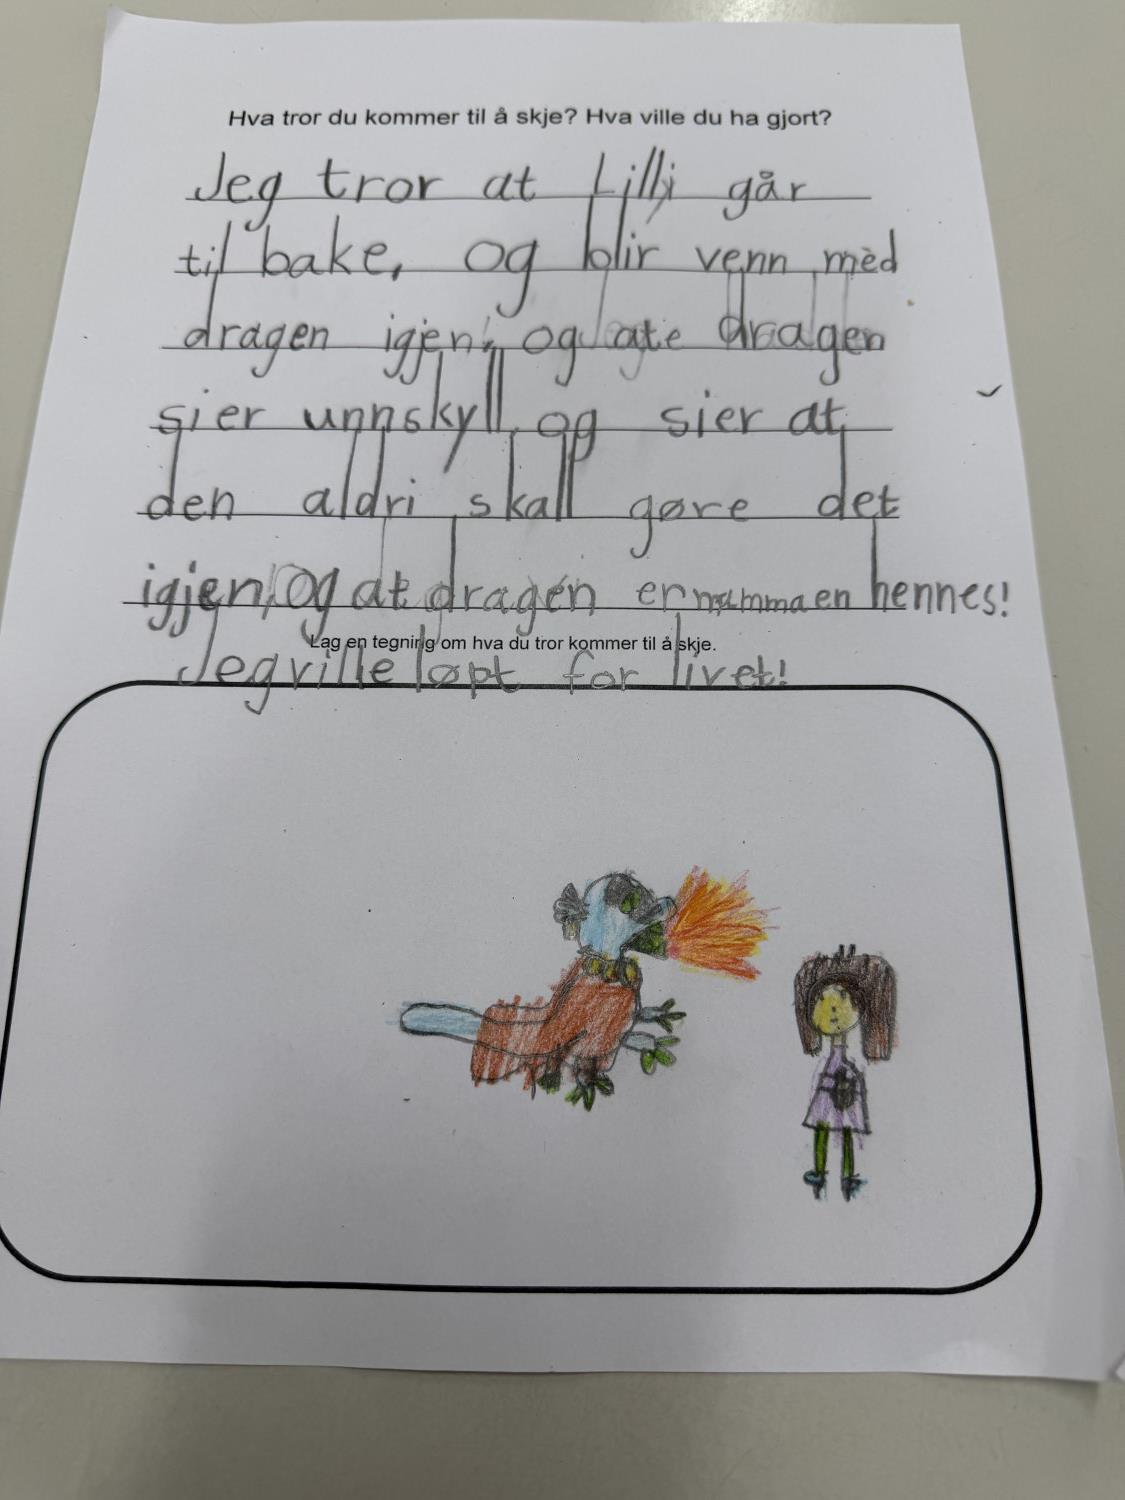 Hva tror du kommer til å skje? Hva ville du ha gjort?
Jeg tror at Lilly går
til bake, og blir venn med
dragen igjen, og ate dragen
sier unnskyll og sier at
den aldri skall gøre det
igjen, og at dragen er mammaen hennes!
Lag en tegning om hva du tror kommer til å skje.
Jeg ville løpt for livet!